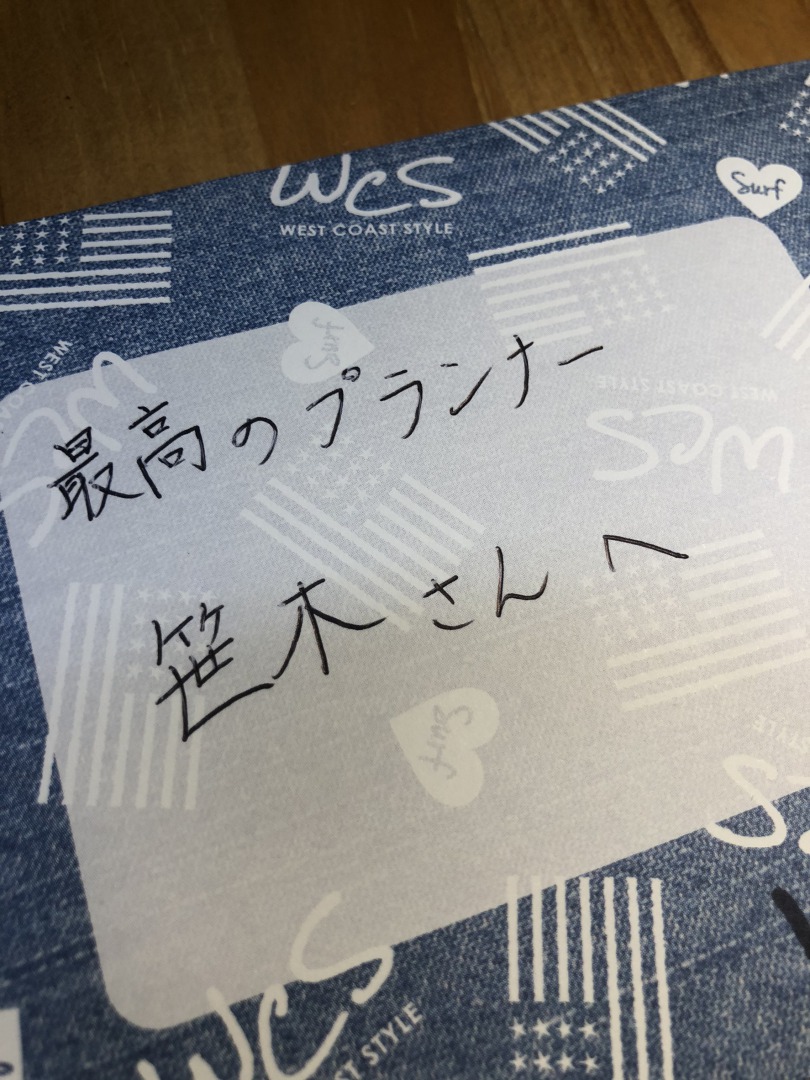 WCS
WEST COAST STYLE
Surf
Surf
WEST COA
WCS
最高のプランナー
WEST COAST STYLE
WCS
笹木さんへ
Surf
STYLE
WCS
ST STYLE